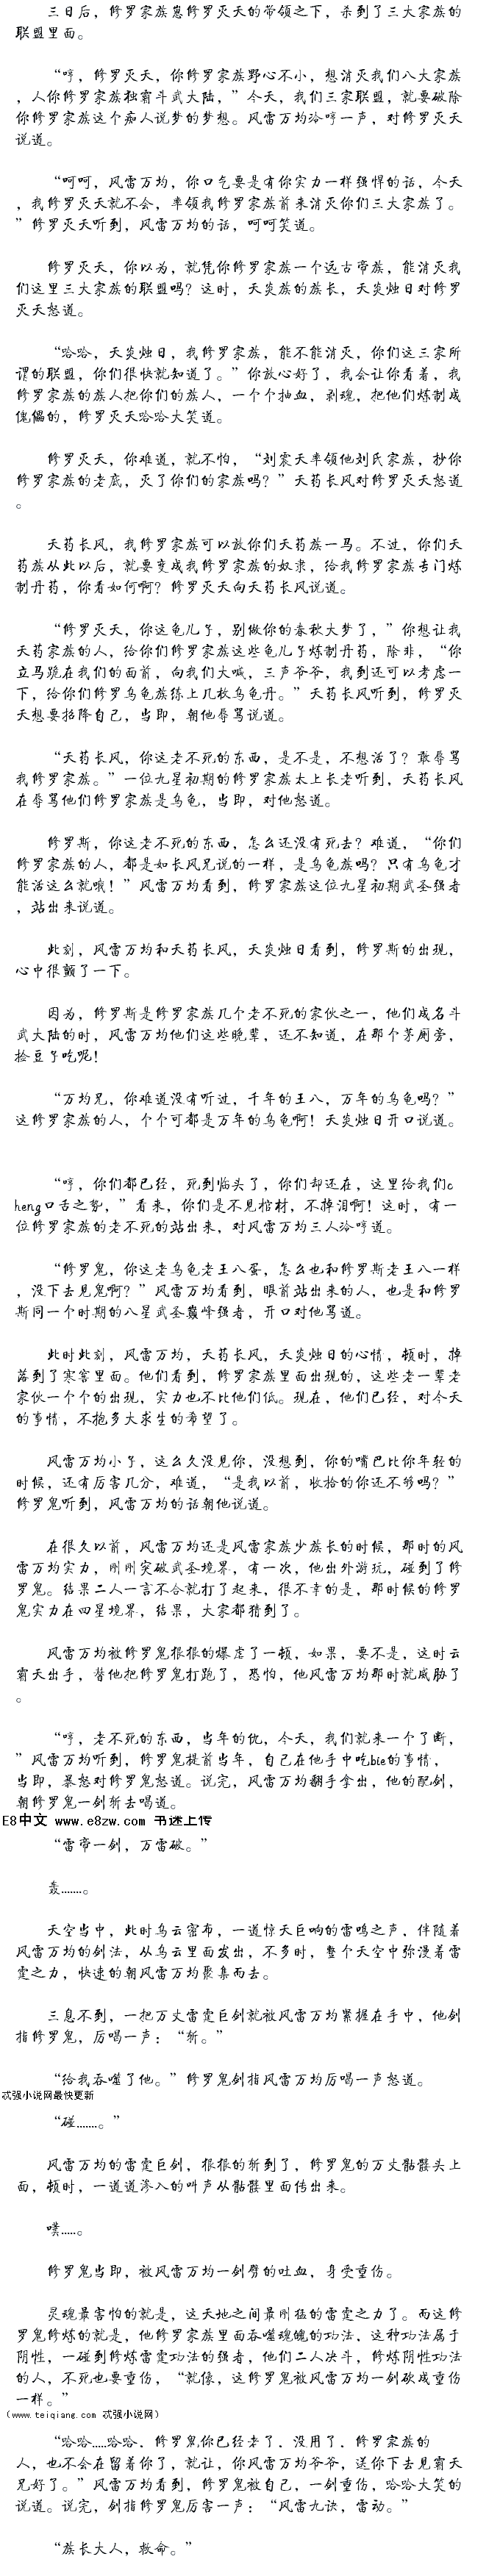 三日后，修罗家族崽修罗灭天的带领之下，杀到了三大家族的
联盟里面。
“哼，修罗灭天，你修罗家族野心不小，想消灭我们八大家族
，人你修罗家族独霸斗武大陆，”今天，我们三家联盟，就要破除
你修罗家族这个痴人说梦的梦想。风雷万均冷哼一声，对修罗灭天
说道。
“呵呵，风雷万均，你口气要是有你实力一样强悍的话，今天
，我修罗灭天就不会，率领我修罗家族前来消灭你们三大家族了。
”修罗灭天听到，风雷万均的话，呵呵笑道。
修罗灭天，你以为，就凭你修罗家族一个远古帝族，能消灭我
们这里三大家族的联盟吗？这时，天炎族的族长，天炎烛日对修罗
灭天怒道。
“哈哈，天炎烛日，我修罗家族，能不能消灭，你们这三家所
谓的联盟，你们很快就知道了。”你放心好了，我会让你看着，我
修罗家族的族人把你们的族人，一个个抽血，剥魂，把他们炼制成
傀儡的，修罗灭天哈哈大笑道。
修罗灭天，你难道，就不怕，“刘震天率领他刘氏家族，抄你
修罗家族的老底，灭了你们的家族吗？”天药长风对修罗灭天怒道
。
天药长风，我修罗家族可以放你们天药族一马。不过，你们天
药族从此以后，就要变成我修罗家族的奴隶，给我修罗家族专门炼
制丹药，你看如何啊？修罗灭天向天药长风说道。
“修罗灭天，你这龟儿子，别做你的春秋大梦了，”你想让我
天药家族的人，给你们修罗家族这些龟儿子炼制丹药，除非，“你
立马跪在我们的面前，向我们大喊，三声爷爷，我到还可以考虑一
下，给你们修罗乌龟族练上几枚乌龟丹。”天药长风听到，修罗灭
天想要招降自己，当即，朝他辱骂说道。
“天药长风，你这老不死的东西，是不是，不想活了？敢辱骂
我修罗家族。”一位九星初期的修罗家族太上长老听到，天药长风
在辱骂他们修罗家族是乌龟，当即，对他怒道。
修罗斯，你这老不死的东西，怎么还没有死去？难道，“你们
修罗家族的人，都是如长风兄说的一样，是乌龟族吗？只有乌龟才
能活这么就哦！”风雷万均看到，修罗家族这位九星初期武圣强者
，站出来说道。
此刻，风雷万均和天药长风，天炎烛日看到，修罗斯的出现，
心中很颤了一下。
因为，修罗斯是修罗家族几个老不死的家伙之一，他们成名斗
武大陆的时，风雷万均他们这些晚辈，还不知道，在那个茅厕旁，
捡豆子吃呢！
“万均兄，你难道没有听过，千年的王八，万年的乌龟吗？”
这修罗家族的人，个个可都是万年的乌龟啊！天炎烛日开口说道。
“哼，你们都已经，死到临头了，你们却还在，这里给我们c
heng口舌之势，”看来，你们是不见棺材，不掉泪啊！这时，有一
位修罗家族的老不死的站出来，对风雷万均三人冷哼道。
“修罗鬼，你这老乌龟老王八蛋，怎么也和修罗斯老王八一样
，没下去见鬼啊？”风雷万均看到，眼前站出来的人，也是和修罗
斯同一个时期的八星武圣巅峰强者，开口对他骂道。
此时此刻，风雷万均，天药长风，天炎烛日的心情，顿时，掉
落到了寒窖里面。他们看到，修罗家族里面出现的，这些老一辈老
家伙一个个的出现，实力也不比他们低。现在，他们已经，对今天
的事情，不抱多大求生的希望了。
风雷万均小子，这么久没见你，没想到，你的嘴巴比你年轻的
时候，还有厉害几分，难道，“是我以前，收拾的你还不够吗？”
修罗鬼听到，风雷万均的话朝他说道。
在很久以前，风雷万均还是风雷家族少族长的时候，那时的风
雷万均实力，刚刚突破武圣境界，有一次，他出外游玩，碰到了修
罗鬼。结果二人一言不合就打了起来，很不幸的是，那时候的修罗
鬼实力在四星境界，结果，大家都猜到了。
风雷万均被修罗鬼狠狠的爆虐了一顿，如果，要不是，这时云
霸天出手，替他把修罗鬼打跑了，恐怕，他风雷万均那时就威胁了
。
“哼，老不死的东西，当年的仇，今天，我们就来一个了断，
”风雷万均听到，修罗鬼提前当年，自己在他手中吃bie的事情，
当即，暴怒对修罗鬼怒道。说完，风雷万均翻手拿出，他的配剑，
朝修罗鬼一剑斩去喝道。
E8中文 www.e8zw.com 书迷上传
“雷帝一剑，万雷破。”
轰……。
天空当中，此时乌云密布，一道惊天巨响的雷鸣之声，伴随着
风雷万均的剑法，从乌云里面发出，不多时，整个天空中弥漫着雷
霆之力，快速的朝风雷万均聚集而去。
三息不到，一把万丈雷霆巨剑就被风雷万均紧握在手中，他剑
指修罗鬼，厉喝一声：“斩。”
“给我吞噬了他。”修罗鬼剑指风雷万均厉喝一声怒道。
忒强小说网最快更新
“碰……。”
风雷万均的雷霆巨剑，狠狠的斩到了，修罗鬼的万丈骷髅头上
面，顿时，一道道渗人的叫声从骷髅里面传出来。
噗……。
修罗鬼当即，被风雷万均一剑劈的吐血，身受重伤。
灵魂最害怕的就是，这天地之间最刚猛的雷霆之力了。而这修
罗鬼修炼的就是，他修罗家族里面吞噬魂魄的功法，这种功法属于
阴性，一碰到修炼雷霆功法的强者，他们二人决斗，修炼阴性功法
的人，不死也要重伤，“就像，这修罗鬼被风雷万均一剑砍成重伤
一样。”
（www.teiqiang.com 忒强小说网）
“哈哈……哈哈、修罗鬼你已经老了、没用了、修罗家族的
人，也不会在留着你了，就让，你风雷万均爷爷，送你下去见霸天
兄好了。”风雷万均看到，修罗鬼被自己，一剑重伤，哈哈大笑的
说道。说完，剑指修罗鬼厉害一声：“风雷九诀，雷动。”
“族长大人，救命。”